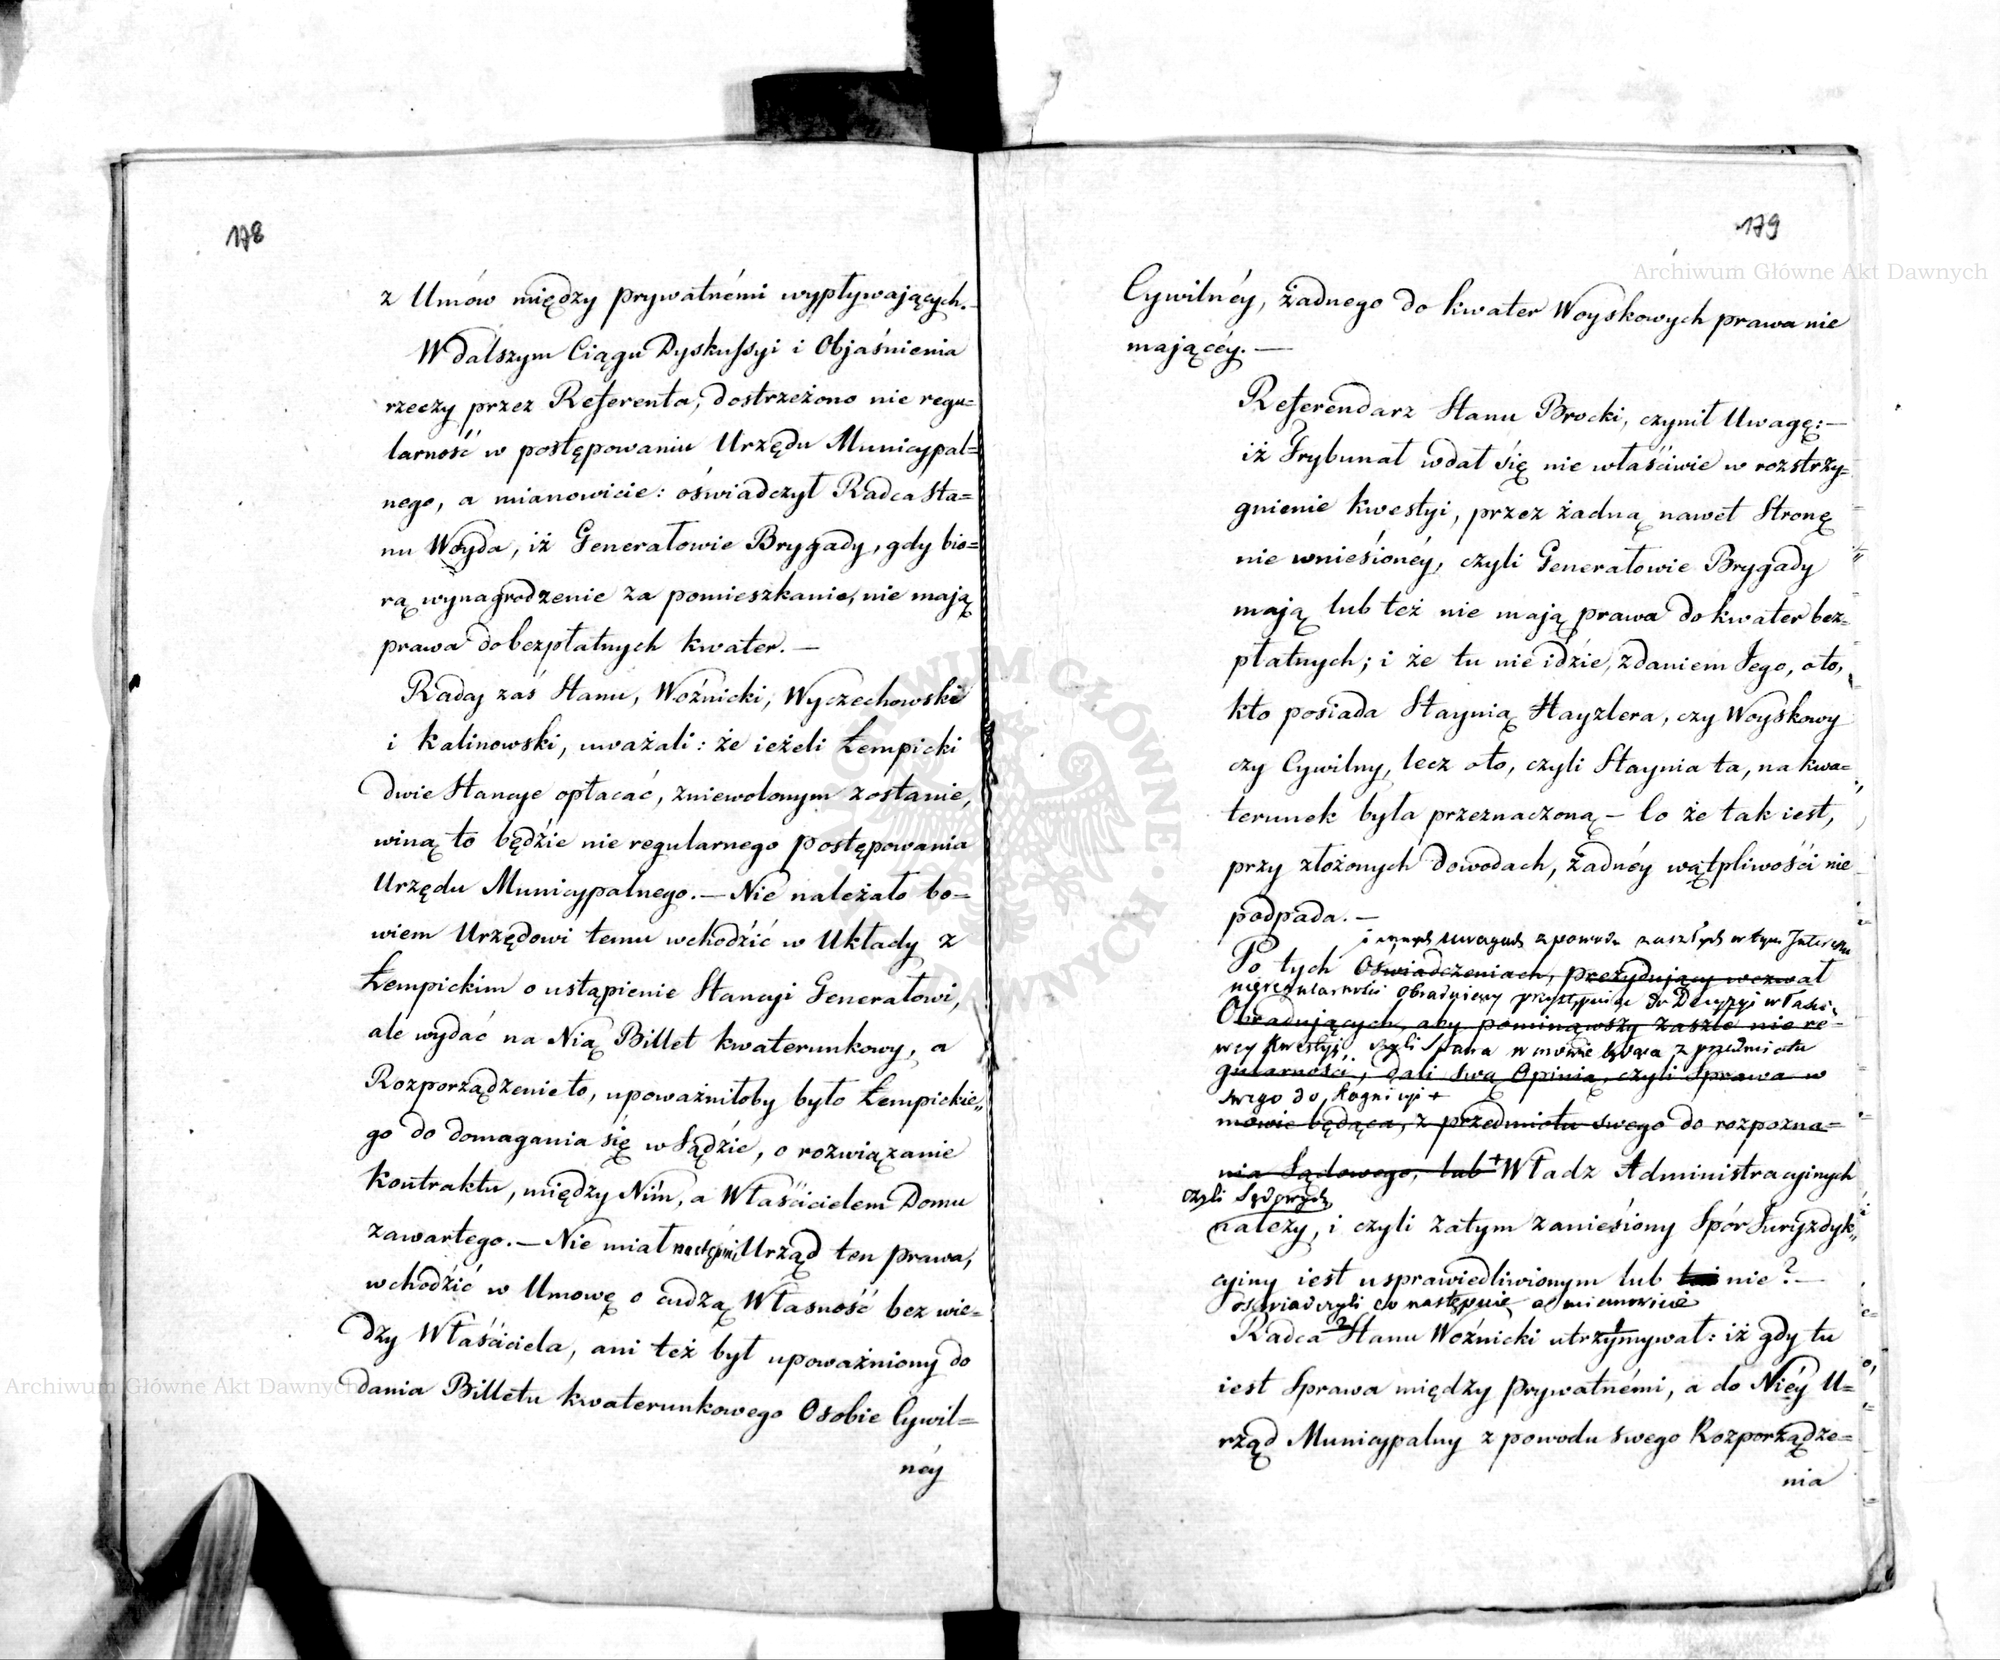 178
z Umów między prywatnémi wypływających.
W dalszym Ciągu Dyskussyi i Objaśnienia
rzeczy przez Referenta, dostrzeżono nie regu=
larność w postępowaniu Urzędu Municypal=
nego, a mianowicie: oświadczył Radca Sta=
nu Woyda, iż Generałowie Brygady, gdy bio=
rą wynagrodzenie za pomieszkanie, nie mają
prawa do bezpłatnych kwater. —
Radcy zaś Stanu, Woźnicki, Wyczechowski
i Kalinowski, uważali: że ieżeli Łempicki
dwie Stancye opłacać, zniewolonym zostanie,
winą to będzie nie regularnego postępowania
Urzędu Municypalnego. — Nie należało bo=
wiem Urzędowi temu wchodzić w Układy z
Łempickim o ustąpienie Stancyi Generałowi,
ale wydać na Nią Billet kwaterunkowy, a
Rozporządzenie to, upoważniłoby było Łempickie„
go do domagania się w Sądzie, o rozwiązanie
kontraktu, między Nim, a Właścicielem Domu
zawartego. — Nie miał następnie Urząd ten prawa,
wchodzić w Umowę o cudzą Własność bez wie=
dzy Właściciela, ani też był upoważniony do
dania Billetu kwaterunkowego Osobie Cywil=
néy
179
Cywilnéy, żadnego do kwater Woyskowych prawa nie
maiącéy. —
Referendarz Stanu Brocki, czynił Uwagę: —
iż Trybunał wdał się nie właściwie w rozstrzy=
gnienie kwestyi, przez żadną nawet Stronę
nie wniesionéy, czyli Generałowie Brygady
mają lub też nie mają prawa do kwater bez=
płatnych; i że tu nie idzie, zdaniem Jego, oto,
kto posiada Staynią Hayzlera, czy Woyskowy
czy Cywilny, lecz oto, czyli Staynia ta, na kwa=
terunek była przeznaczoną — Co że tak iest,
przy złożonych dowodach, żadnéy wątpliwości nie
podpada. —
i innych uwagach z powodu zaszłych w tym Interessie
Po tych Oświadczeniach, prezyduiący wezwał
nieregularności Obraduiący przystępuiąc do Decyzyi właści
Obraduiących, aby pominąwszy zaszłe nie re=
wey Kwestyi, czyli Sprawa w mowie będąca z przedmiotu
gularności, dali swą Opinią, czyli Sprawa w
swego do, Kognicyi +
mowie będąca, z przedmiotu swego do rozpozna=
nia Sądowego, lub + Władz Administracyinych
czyli Sądowych
należy, i czyli zatym zaniesiony Spór Juryzdyk„
cyiny iest usprawiedliwionym lub nie? —
oświadczyli co następuie a mianowicie
Radca Stanu Woźnicki utrzymywał: iż gdy tu
iest Sprawa między Prywatnémi, a do Niéy U=
rząd Municypalny z powodu swego Rozporządze=
nia
Archiwum Główne Akt Dawnych
Archiwum Główne Akt Dawnych
ARCHIWUM GŁÓWNE AKT DAWNYCH